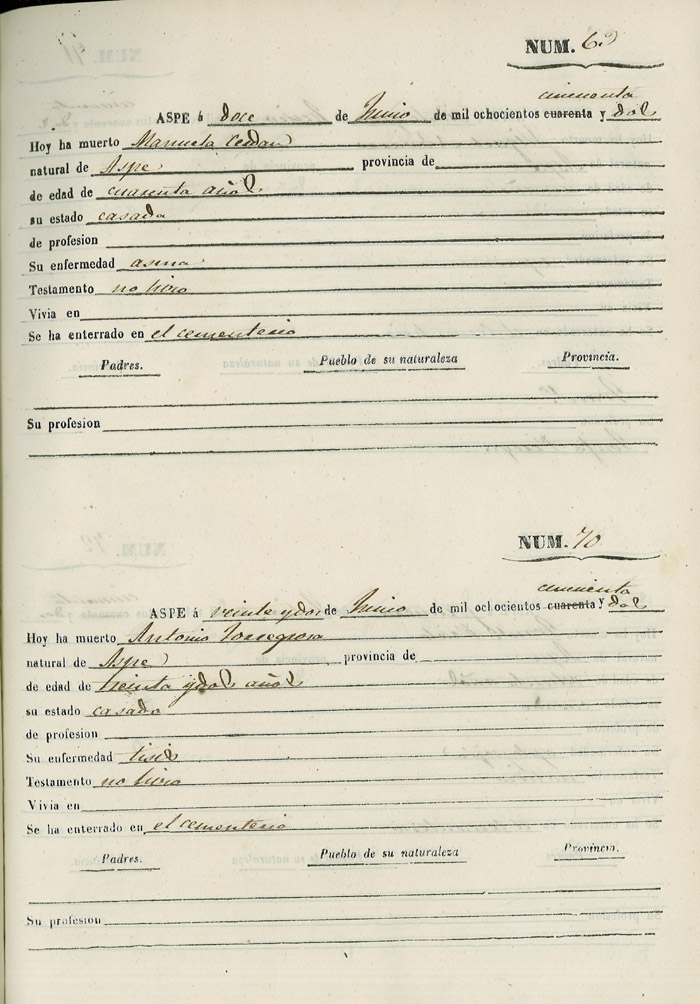 NUM. 69
cincuenta
ASPE á doce de Junio de mil ochocientos cuarenta y dos
Hoy ha muerto Manuela Cerdan
natural de Aspe provincia de
de edad de cuarenta años
su estado casada
de profesion
Su enfermedad asma
Testamento no hizo
Vivia en
Se ha enterrado en el cementerio
Padres. Pueblo de su naturaleza Provincia.
Su profesion
NUM. 70
cincuenta
ASPE á veinte y dos de Junio de mil ochocientos cuarenta y dos
Hoy ha muerto Antonio Torregrosa
natural de Aspe provincia de
de edad de treinta y dos años
su estado casado
de profesion
Su enfermedad tisis
Testamento no hizo
Vivia en
Se ha enterrado en el cementerio
Padres. Pueblo de su naturaleza Provincia.
Su profesion